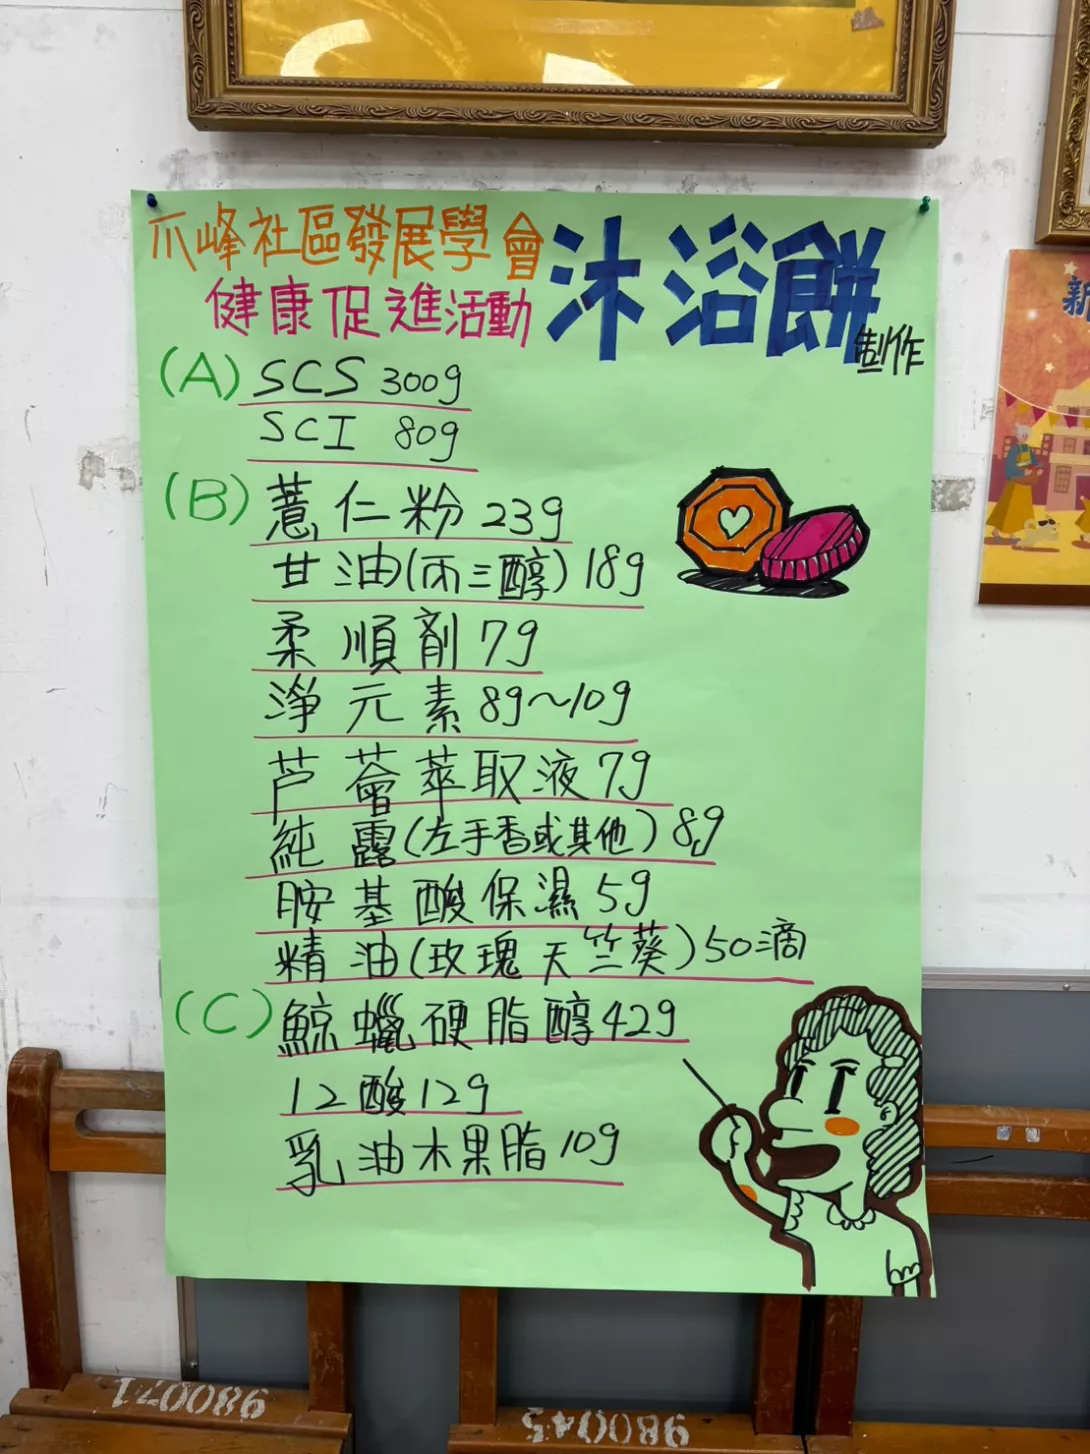 爪峰社區發展學會
健康促進活動
沐浴餅
製作
(A) SCS 300g
SCI 80g
(B) 薏仁粉 23g
甘油(丙三醇) 18g
柔順劑 7g
淨元素 8g~10g
芦薈萃取液 7g
純露(左手香或其他) 8g
胺基酸保濕 5g
精油(玫瑰天竺葵) 50滴
(C) 鯨蠟硬脂醇 42g
12酸 12g
乳油木果脂 10g
新
980071
980045